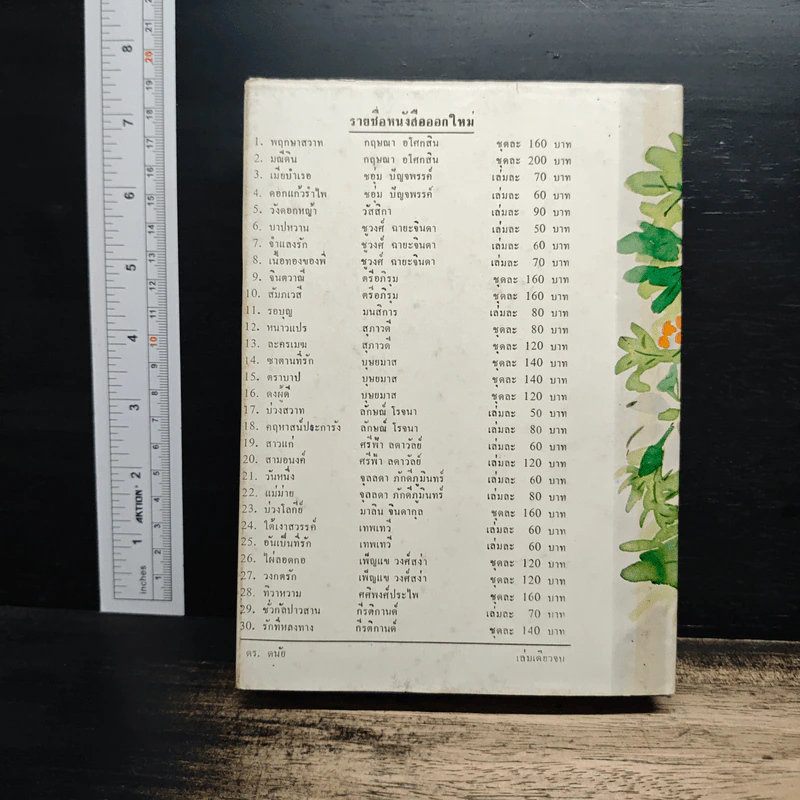 รายชื่อหนังสือออกใหม่
1. พฤกษาสวาท กฤษณา อโศกสิน ชุดละ 160 บาท
2. มณีดิน กฤษณา อโศกสิน ชุดละ 200 บาท
3. เมียบำเรอ ชอุ่ม ปัญจพรรค์ เล่มละ 70 บาท
4. ดอกแก้วรำไพ ชอุ่ม ปัญจพรรค์ เล่มละ 60 บาท
5. วังดอกหญ้า วัสสิกา เล่มละ 90 บาท
6. บาปหวาน ชูวงศ์ ฉายะจินดา เล่มละ 50 บาท
7. จำแลงรัก ชูวงศ์ ฉายะจินดา เล่มละ 60 บาท
8. เนื้อทองของพี่ ชูวงศ์ ฉายะจินดา เล่มละ 70 บาท
9. จินตวาณี ตรีอภิรุม ชุดละ 160 บาท
10. สัมภเวสี ตรีอภิรุม ชุดละ 160 บาท
11. รอบุญ มนสิการ เล่มละ 80 บาท
12. หนาวแปร สุภาวดี ชุดละ 80 บาท
13. ละครเมฆ สุภาวดี ชุดละ 120 บาท
14. ซาตานที่รัก บุษยมาส ชุดละ 140 บาท
15. ตราบาป บุษยมาส ชุดละ 140 บาท
16. ดงผู้ดี บุษยมาส ชุดละ 120 บาท
17. บ่วงสวาท ลักษณ์ โรจนา เล่มละ 50 บาท
18. คฤหาสน์ปะการัง ลักษณ์ โรจนา เล่มละ 80 บาท
19. สาวแก่ ศรีฟ้า ลดาวัลย์ เล่มละ 60 บาท
20. สามอนงค์ ศรีฟ้า ลดาวัลย์ เล่มละ 120 บาท
21. วันหนึ่ง จุลลดา ภักดีภูมินทร์ เล่มละ 60 บาท
22. แม่ม่าย จุลลดา ภักดีภูมินทร์ เล่มละ 80 บาท
23. บ่วงโลกีย์ มาลิน จินดากุล ชุดละ 160 บาท
24. ใต้เงาสวรรค์ เทพเทวี เล่มละ 60 บาท
25. อันเป็นที่รัก เทพเทวี เล่มละ 60 บาท
26. ไผ่ลอดกอ เพ็ญแข วงศ์สง่า ชุดละ 120 บาท
27. วงกตรัก เพ็ญแข วงศ์สง่า ชุดละ 120 บาท
28. ทิวาหวาม ศศิพงศ์ประไพ ชุดละ 160 บาท
29. ชั่วกัลปาวสาน กีรติกานต์ เล่มละ 70 บาท
30. รักที่หลงทาง กีรติกานต์ ชุดละ 140 บาท
ดร. ดนัย เล่มเดียวจบ
8
20
7
6
5
4
10
3
2
AKTION
1
inches